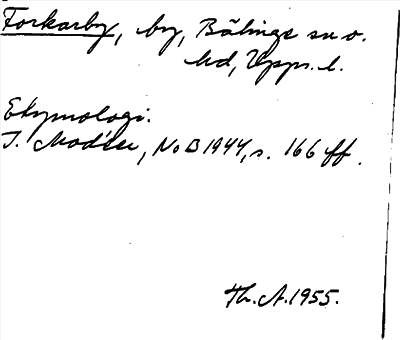 Forkarby, by, Bälings sn o.
hd, Upps. l.
Etymologi.
I. Modéer, NoB 1944, s. 166 ff.
Th. A. 1955.